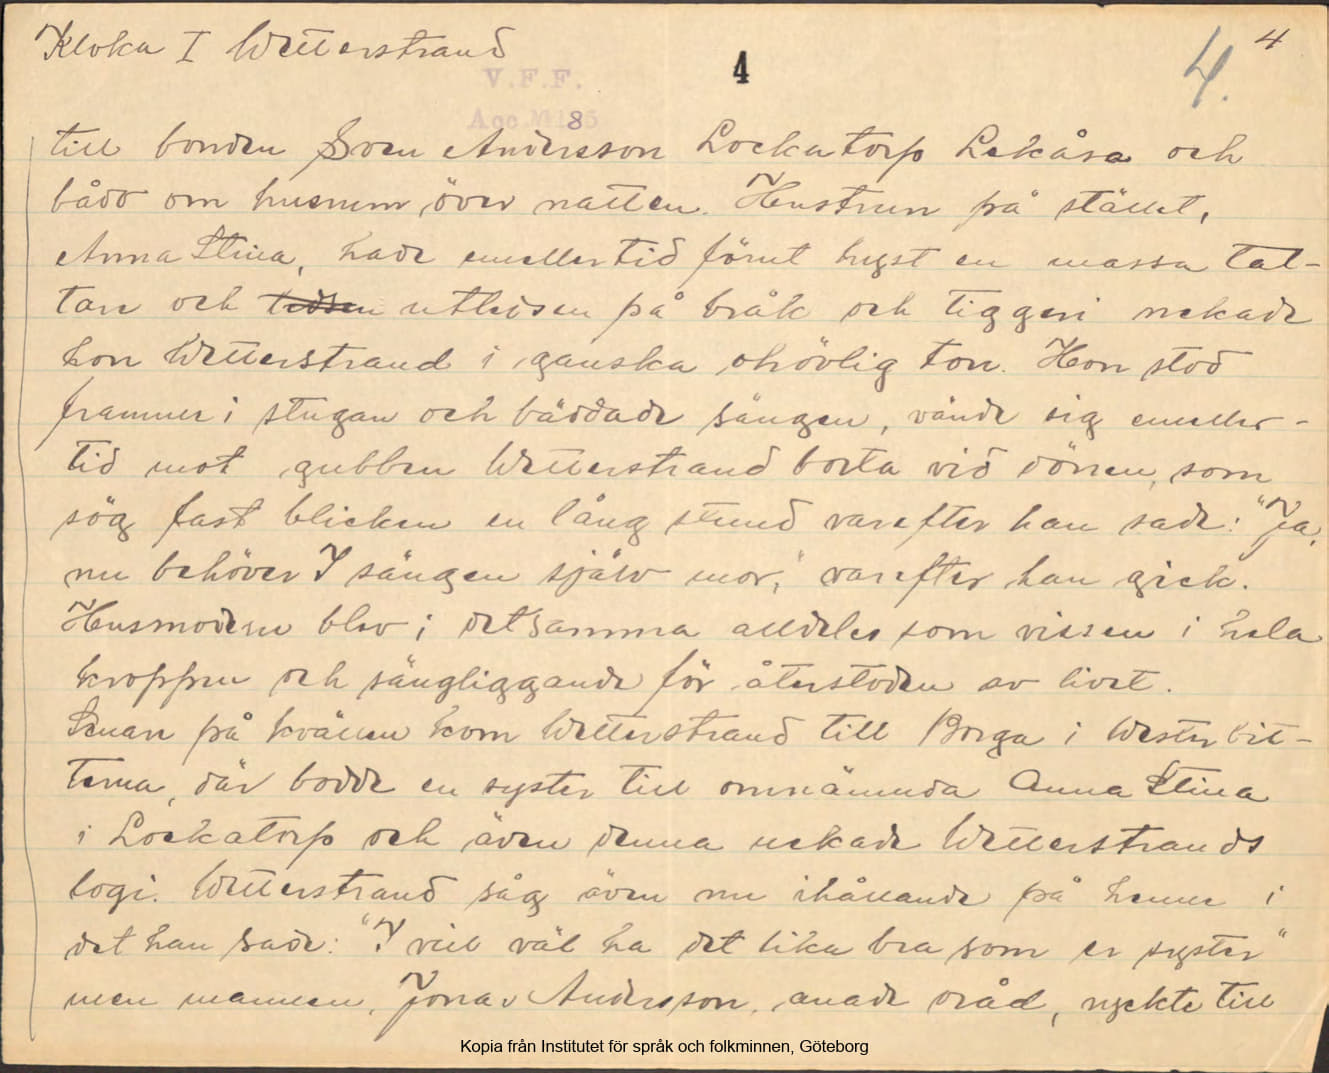 Kloka I Wetterstrand
V.F.F.
4
4.
4
Acc. № 185
till bonden Sven Andersson Lockatorp Lekåsa och
bådo om husrum över natten. Hustrun på stället,
Anna Stina, hade emellertid förut hyst en massa tat-
tare och ledsen utledsen på bråk och tiggeri nekade
hon Wetterstrand i ganska ohövlig ton. Hon stod
framme i stugan och bäddade sängen, vände sig emeller-
tid mot gubben Wetterstrand borta vid dörren, som
sög fast blicken en lång stund varefter han sade: "Ja,
nu behöver I sängen själv mor," varefter han gick.
Husmodern blev i detsamma alldeles som vissen i hela
kroppen och sängliggande för återstoden av livet.
Senare på kvällen kom Wetterstrand till Borga i Westerbit-
terna, där bodde en syster till omnämnda Anna Stina
i Lockatorp och även denna nekade Wetterstrands
logi. Wetterstrand såg även nu ihållande på henne i
det han sade: "I vill väl ha det lika bra som er syster"
men mannen, Jonas Andersson, anade oråd, ryckte till
Kopia från Institutet för språk och folkminnen, Göteborg